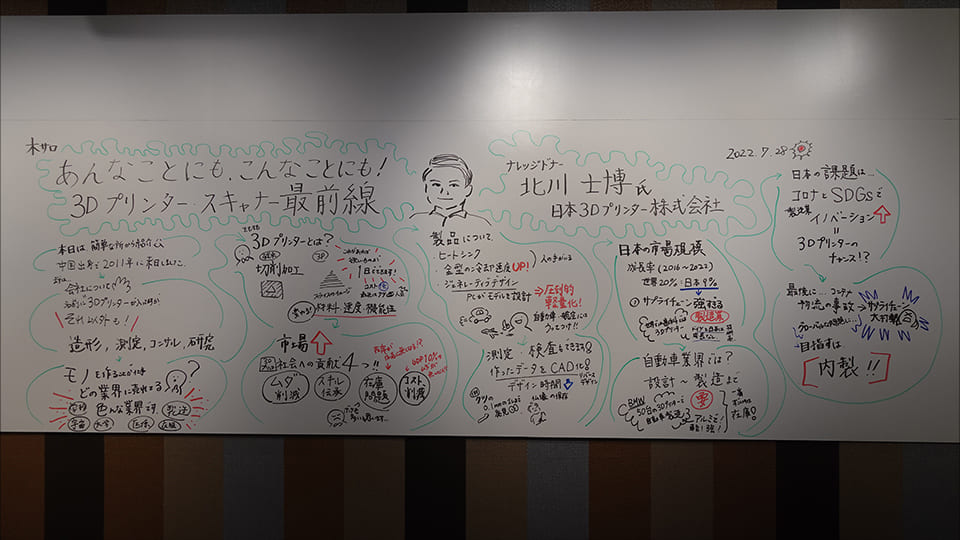 木サロ
あんなことにも、こんなことにも！
3Dプリンター・スキャナー最前線
ナレッジドナー
北川 士博氏
日本3Dプリンター株式会社
2022.7.28
本日は 簡単な所から紹介
中国出身で2011年に来日
会社について
元々は3Dプリンターが
それ以外も！
造形, 測定, コンサル, 研究
モノを作ることには
どの業界に売れてる？
色んな業界です
宇宙
大学
医療
3Dプリンターとは？
切削加工
1日でできます！
材料・速度・機能性
市場
社会への貢献で4つ!!
ムダ削減
スキル伝承
在庫問題
コスト削減
製品について
ヒートシンク
金型の冷却速度UP！
ジェネレーティブデザイン
PCがモデルを設計
→圧倒的軽量化！
自動車・航空には
うってつけ!!
測定・検査もできます
作ったデータをCAD化
リバースデザイン
デザイン時間
日本の市場規模
成長率(2016〜2022)
世界20%：日本9%
サプライチェーン強すぎる
製造業
自動車業界では？
設計〜製造まで
BMW
50台の3Dプリンター
自動車製造
要
アルミで
在庫0
日本の課題は…
コロナとSDGsで
製造業
イノベーション
=
3Dプリンターの
チャンス!?
最後に…コンテナ
物流の事故→サプライチェーン大打撃
目指すは
内製!!